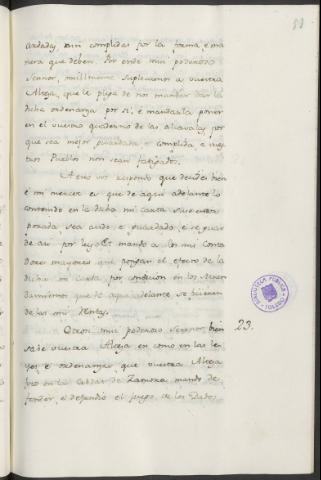 ardadas, nin complidas por la forma, é ma
nera que deben. Por ende mui poderoso
Sennor, muillmente suplicamos a vuestra
Alteza, que le plega de nos mandar dar la
dicha ordenanza por si, é mandarla poner
en el vuestro quaderno de las alcavalas, por
que sea mejor guardada, e complida, e vues
tros Pueblos non sean fatigados.
A esto vos respondo que decides bien
é mi merced es que de aqui adelante lo
contenido en la dicha mi carta suso encor
porada sea avido, e guardado, e se guar
de asi por ley, e mando a los mis Conta
dores mayores que pongan el efecto de la
dicha mi carta por condicion en los Arren
damientos que de aqui adelante se ficieren
de las mis Rentas.
Otrosi mui poderoso Sennor, bien
sabe vuestra Alteza en como en las le
yes e ordenanzas que vuestra Alteza
fizo en la Cibdad de Zamora mando de
fender, e defendió el juego de los Dados
23.
BIBLIOTECA PUBLICA
TOLEDO